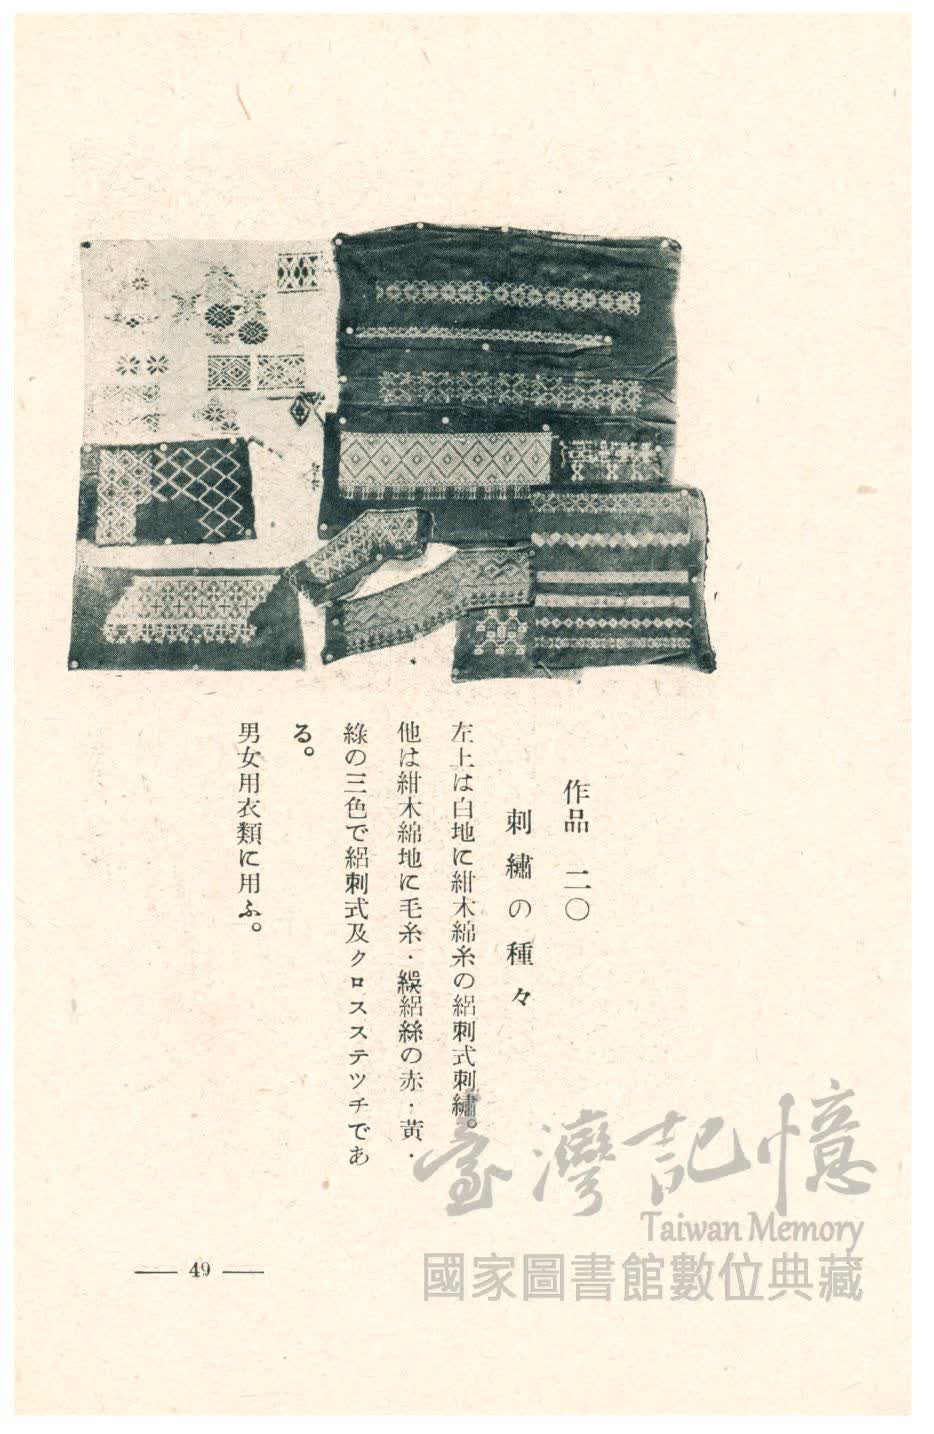 作品 二〇
刺繡の種々
左上は白地に紺木綿糸の絽刺式刺繡。
他は紺木綿地に毛糸・絽絲の赤・黃・
綠の三色で絽刺式及クロスステツチであ
る。
男女用衣類に用ふ。
臺灣記憶
Taiwan Memory
國家圖書館數位典藏
49